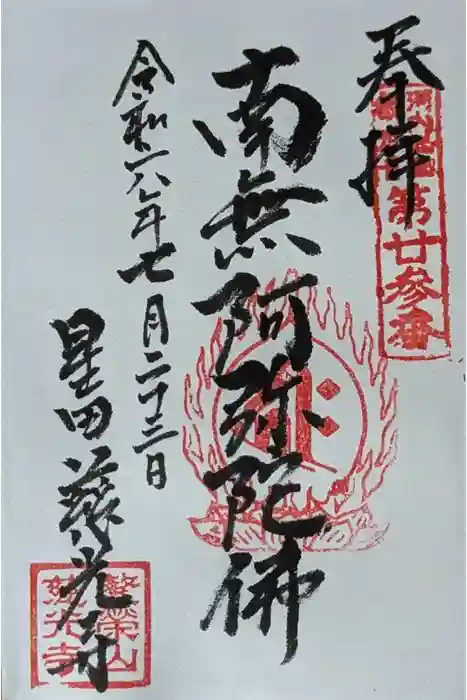 奉拝
第廿参番
南無阿弥陀佛
令和六年七月二十三日
星田 慈光寺
繁榮山
慈光寺